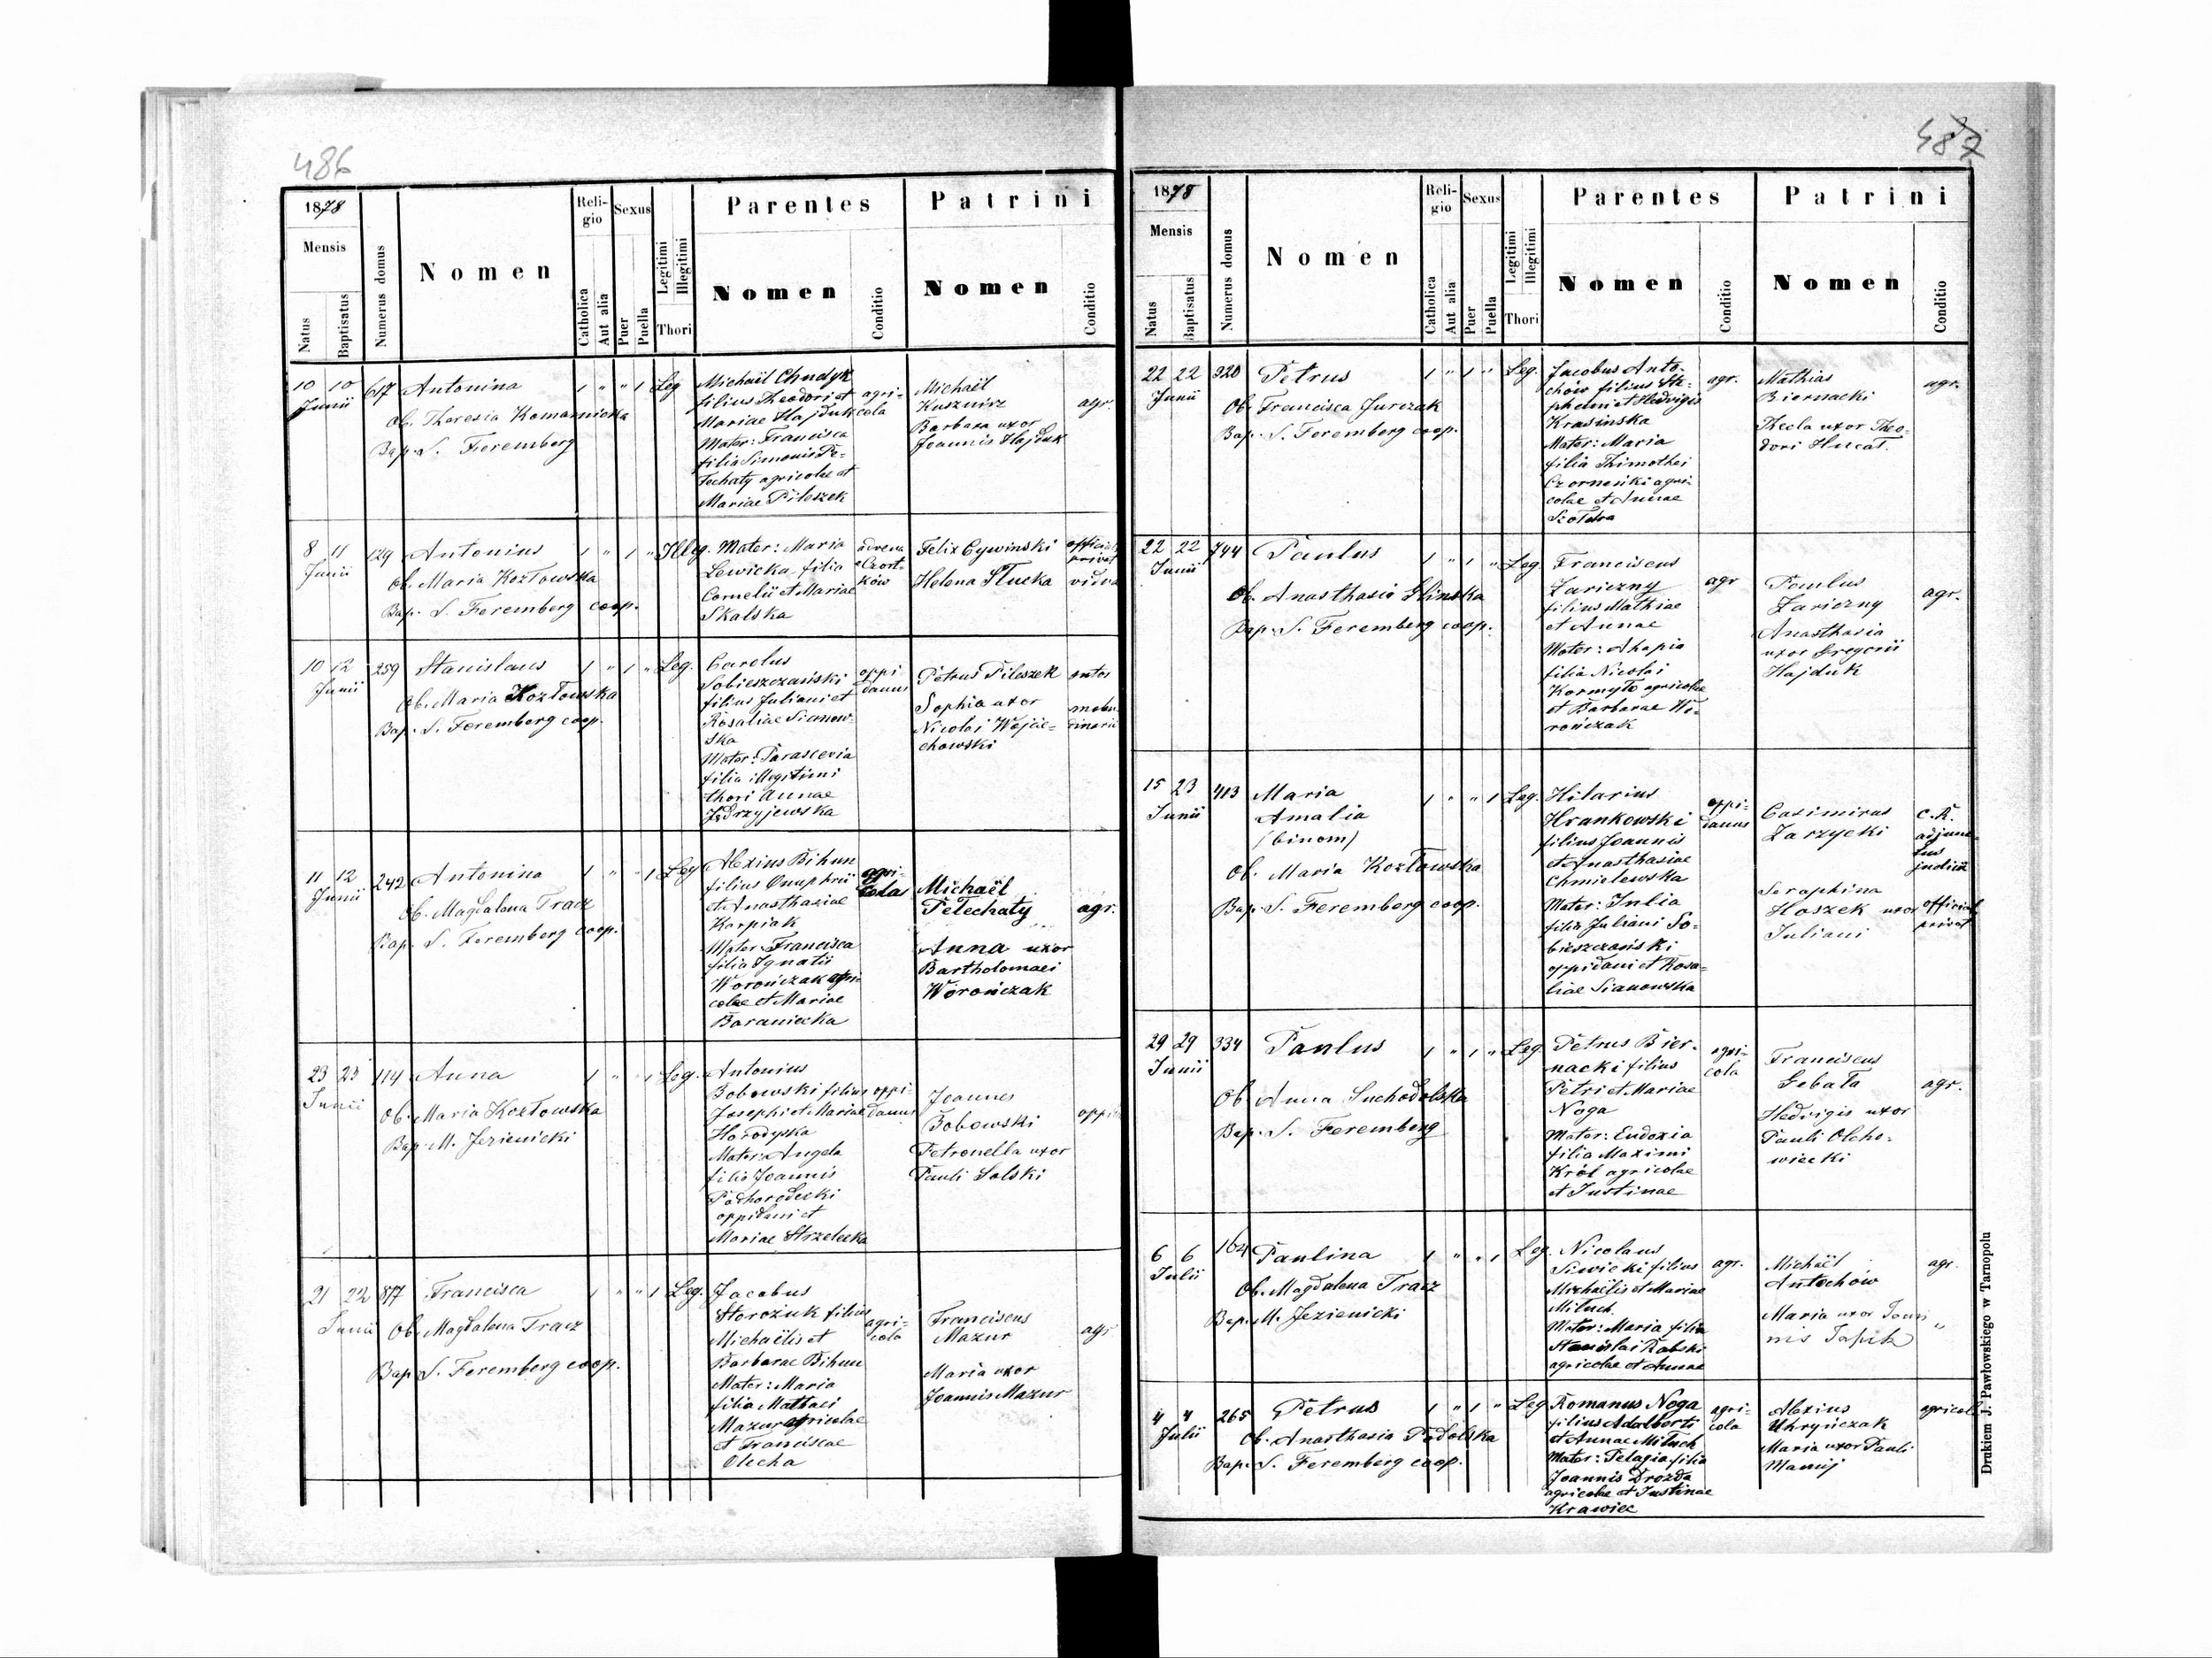 486
1878
Mensis
Natus
Baptisatus
Numerus domus
Nomen
Religio
Catholica
Aut alia
Sexus
Puer
Puella
Legitimi
Illegitimi
Thori
Parentes
Nomen
Conditio
Patrini
Nomen
Conditio
10 10 617 Antonina 1 " " 1 Leg
Junii
Ob. Theresia Komarnicka
Bap. S. Feremberg
Michaël Chudyk
filius Theodori et
Mariae Hajduk
Mater: Francisca
filia Simonis Pe-
łechaty agricolae et
Mariae Pileszek
agri-
cola
Michaël
Kusznirz
Barbara uxor
Joannis Hajduk
agr.
8 11 129 Antonius 1 " 1 " Illeg.
Junii
Ob. Maria Kozłowska
Bap. S. Feremberg coop.
Mater: Maria
Lewicka filia
Cornelii et Mariae
Skalska
advena
Czort-
ków
Felix Cywinski
Helena Słucka
official
privat
vidua
10 12 259 Stanislaus 1 " 1 " Leg.
Junii
Ob. Maria Kozłowska
Bap. S. Feremberg coop.
Carolus
Sobieszczański
filius Juliani et
Rosaliae Sianow-
ska
Mater: Parascevia
filia illegitimi
thori Annae
Jędrzyjewska
oppi
danus
Petrus Pileszek
Sophia uxor
Nicolai Wojcie-
chowski
sutor
11 12 242 Antonina 1 " " 1 Leg
Junii
Ob. Magdalena Tracz
Bap. S. Feremberg coop.
Alexius Bihun
filius Onuphrii
et Anasthasiae
Karpiak
Mater: Francisca
filia Ignatii
Worończak agri-
colae et Mariae
Baraniecka
agri-
colae
Michaël
Pełechaty
Anna uxor
Bartholomaei
Worończak
agr.
23 23 114 Anna 1 " " 1 Leg.
Junii
Ob. Maria Kozłowska
Bap. M. Jezienicki
Antonius
Bobowski filius
Josephi et Mariae
Horodyska
Mater: Angela
filia Joannis
Podhorodecki
oppidani et
Mariae Strzelecka
oppi-
danus
Joannes
Bobowski
Petronella uxor
Pauli Solski
oppi
21 22 817 Francisca 1 " " 1 Leg.
Junii
Ob. Magdalena Tracz
Bap. S. Feremberg coop.
Jacobus
Storożuk filius
Michaëlis et
Barbarae Bihun
Mater: Maria
filia Mathaei
Mazur agricolae
et Franciscae
Olecha
agri-
cola
Franciscus
Mazur
Maria uxor
Joannis Mazur
agr
487
1878
Mensis
Natus
Baptisatus
Numerus domus
Nomen
Religio
Catholica
Aut alia
Sexus
Puer
Puella
Legitimi
Illegitimi
Thori
Parentes
Nomen
Conditio
Patrini
Nomen
Conditio
22 22 320 Petrus 1 " 1 " Leg.
Junii
Ob. Francisca Jurczak
Bap. S. Feremberg coop.
Jacobus Anto-
chów filius Ste-
phani et Hedvigis
Krasinska
Mater: Maria
filia Thimothei
Czorneńki agri-
colae et Annae
Szołdra
agr.
Mathias
Biernacki
Thecla uxor Theo-
dori Hucał.
agr.
22 22 744 Paulus 1 " 1 " Leg.
Junii
Ob. Anasthasia Glinska
Bap. S. Feremberg coop.
Franciscus
Zariczny
filius Mathiae
et Annae
Mater: Ahapia
filia Nicolai
Kormyło agricolae
et Barbarae Wo-
rończak
agr
Paulus
Zariczny
Anasthasia
uxor Gregorii
Hajduk
agr.
15 23 413 Maria 1 " " 1 Leg.
Junii
Amalia
(binom)
Ob. Maria Kozłowska
Bap. S. Feremberg coop.
Hilarius
Hrankowski
filius Joannis
et Anasthasiae
Chmielewska
Mater: Julia
filia Juliani So-
bieszczański
oppidani et Rosa-
liae Sianowska
oppi-
danus
Casimirus
Zarzycki
Seraphina
Hoszek uxor
Juliani
c.k.
adjunc-
tus
judicii
official
privat
29 29 334 Paulus 1 " 1 " Leg.
Junii
Ob. Anna Suchodolska
Bap. S. Feremberg
Petrus Bier-
nacki filius
Petri et Mariae
Noga
Mater: Eudoxia
filia Maximi
Król agricolae
et Justinae
agri-
cola
Franciscus
Gebała
Hedvigis uxor
Pauli Olcho-
wiecki
agr.
6 6 164 Paulina 1 " " 1 Leg.
Julii
Ob. Magdalena Tracz
Bap. M. Jezienicki
Nicolaus
Siwicki filius
Michaëlis et Mariae
Miłuch
Mater: Maria filia
Stanislai Rabski
agricolae et Annae
agr.
Michaël
Antochów
Maria uxor Joan
nis Tapik
agr.
"
4 4 265 Petrus 1 " 1 " Leg
Julii
Ob. Anasthasia Podolska
Bap. S. Feremberg coop.
Romanus Noga
filius Adalberti
et Annae Miłuch
Mater: Pelagia filia
Joannis Drozda
agricolae et Justinae
Krawiec
agri-
cola
Alexius
Uhryńczak
Maria uxor Pauli
agricol
Drukiem J. Pawłowskiego w Tarnopolu